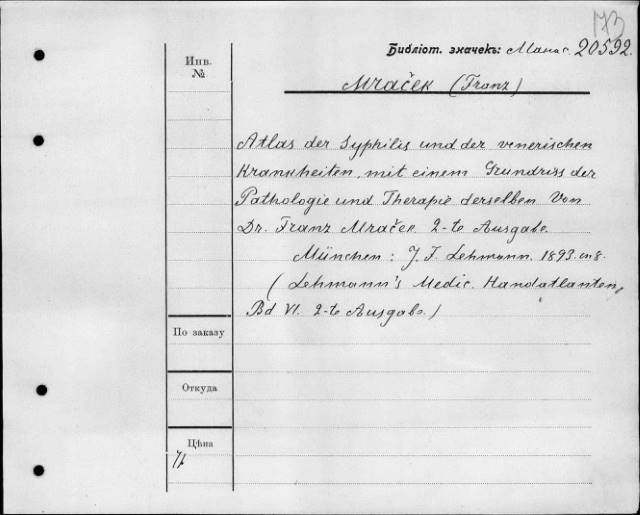 73
Библіот. значекъ: Манас. 20592.
Инв.
№
Mraček (Franz)
Atlas der Syphilis und der venerischen
Krankheiten, mit einem Grundriss der
Pathologie und Therapie derselben Von
Dr. Franz Mraček. 2-te Ausgabe.
München: J. F. Lehmann. 1893. in 8.
(Lehmann's Medic. Handatlanten,
Bd VI. 2-te Ausgabe.)
По заказу
Откуда
Цѣна